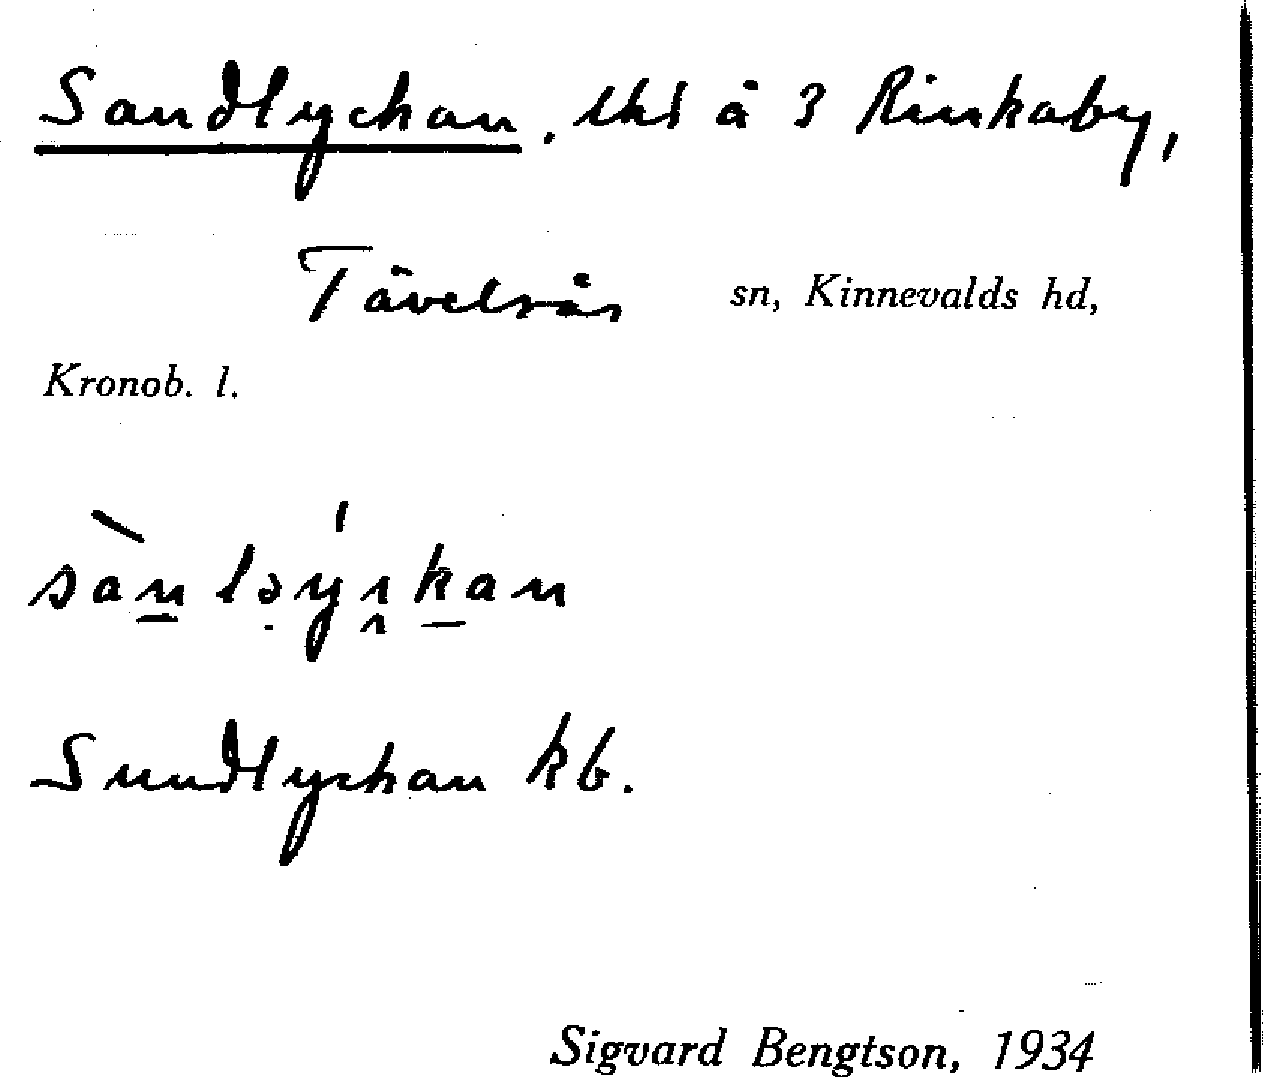 Sandlyckan, lht å 3 Rinkaby,
Tävelsås sn, Kinnevalds hd,
Kronob. l.
Sundlyckan kb.
Sigvard Bengtson, 1934